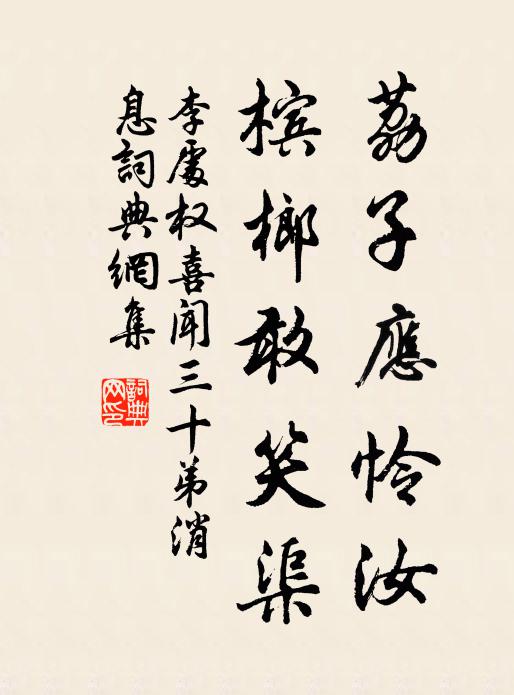 荔子應怜汝
槟榔敢笑渠
李處权喜闻三十弟消
息詞典網集
詞典
网印